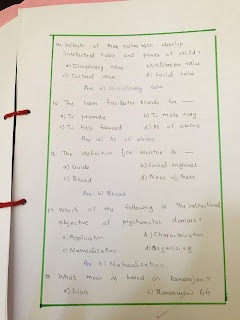 Which of these value helps develop
Intellectual habit and power of child?
a) Disciplinary Value b) Utilitarian value
c) Cultural value d) Social value
Ans: a) Disciplinary Value
The term facilitator stands for —
a) To promote b) To make easy
c) To help forward d) All of above
Ans: d) All of above
The definition for mentor is —
a) Guide b) Social engineer
c) Broad d) None of these
Ans: c) Broad
17. Which of the following is the instructional
objective of psychomotor domain?
a) Application b) Characterisation
c) Naturalisation d) Organising
Ans: Naturalisation
18. What movie is based on Ramanujan?
a) Lion b) Ramanujan's life